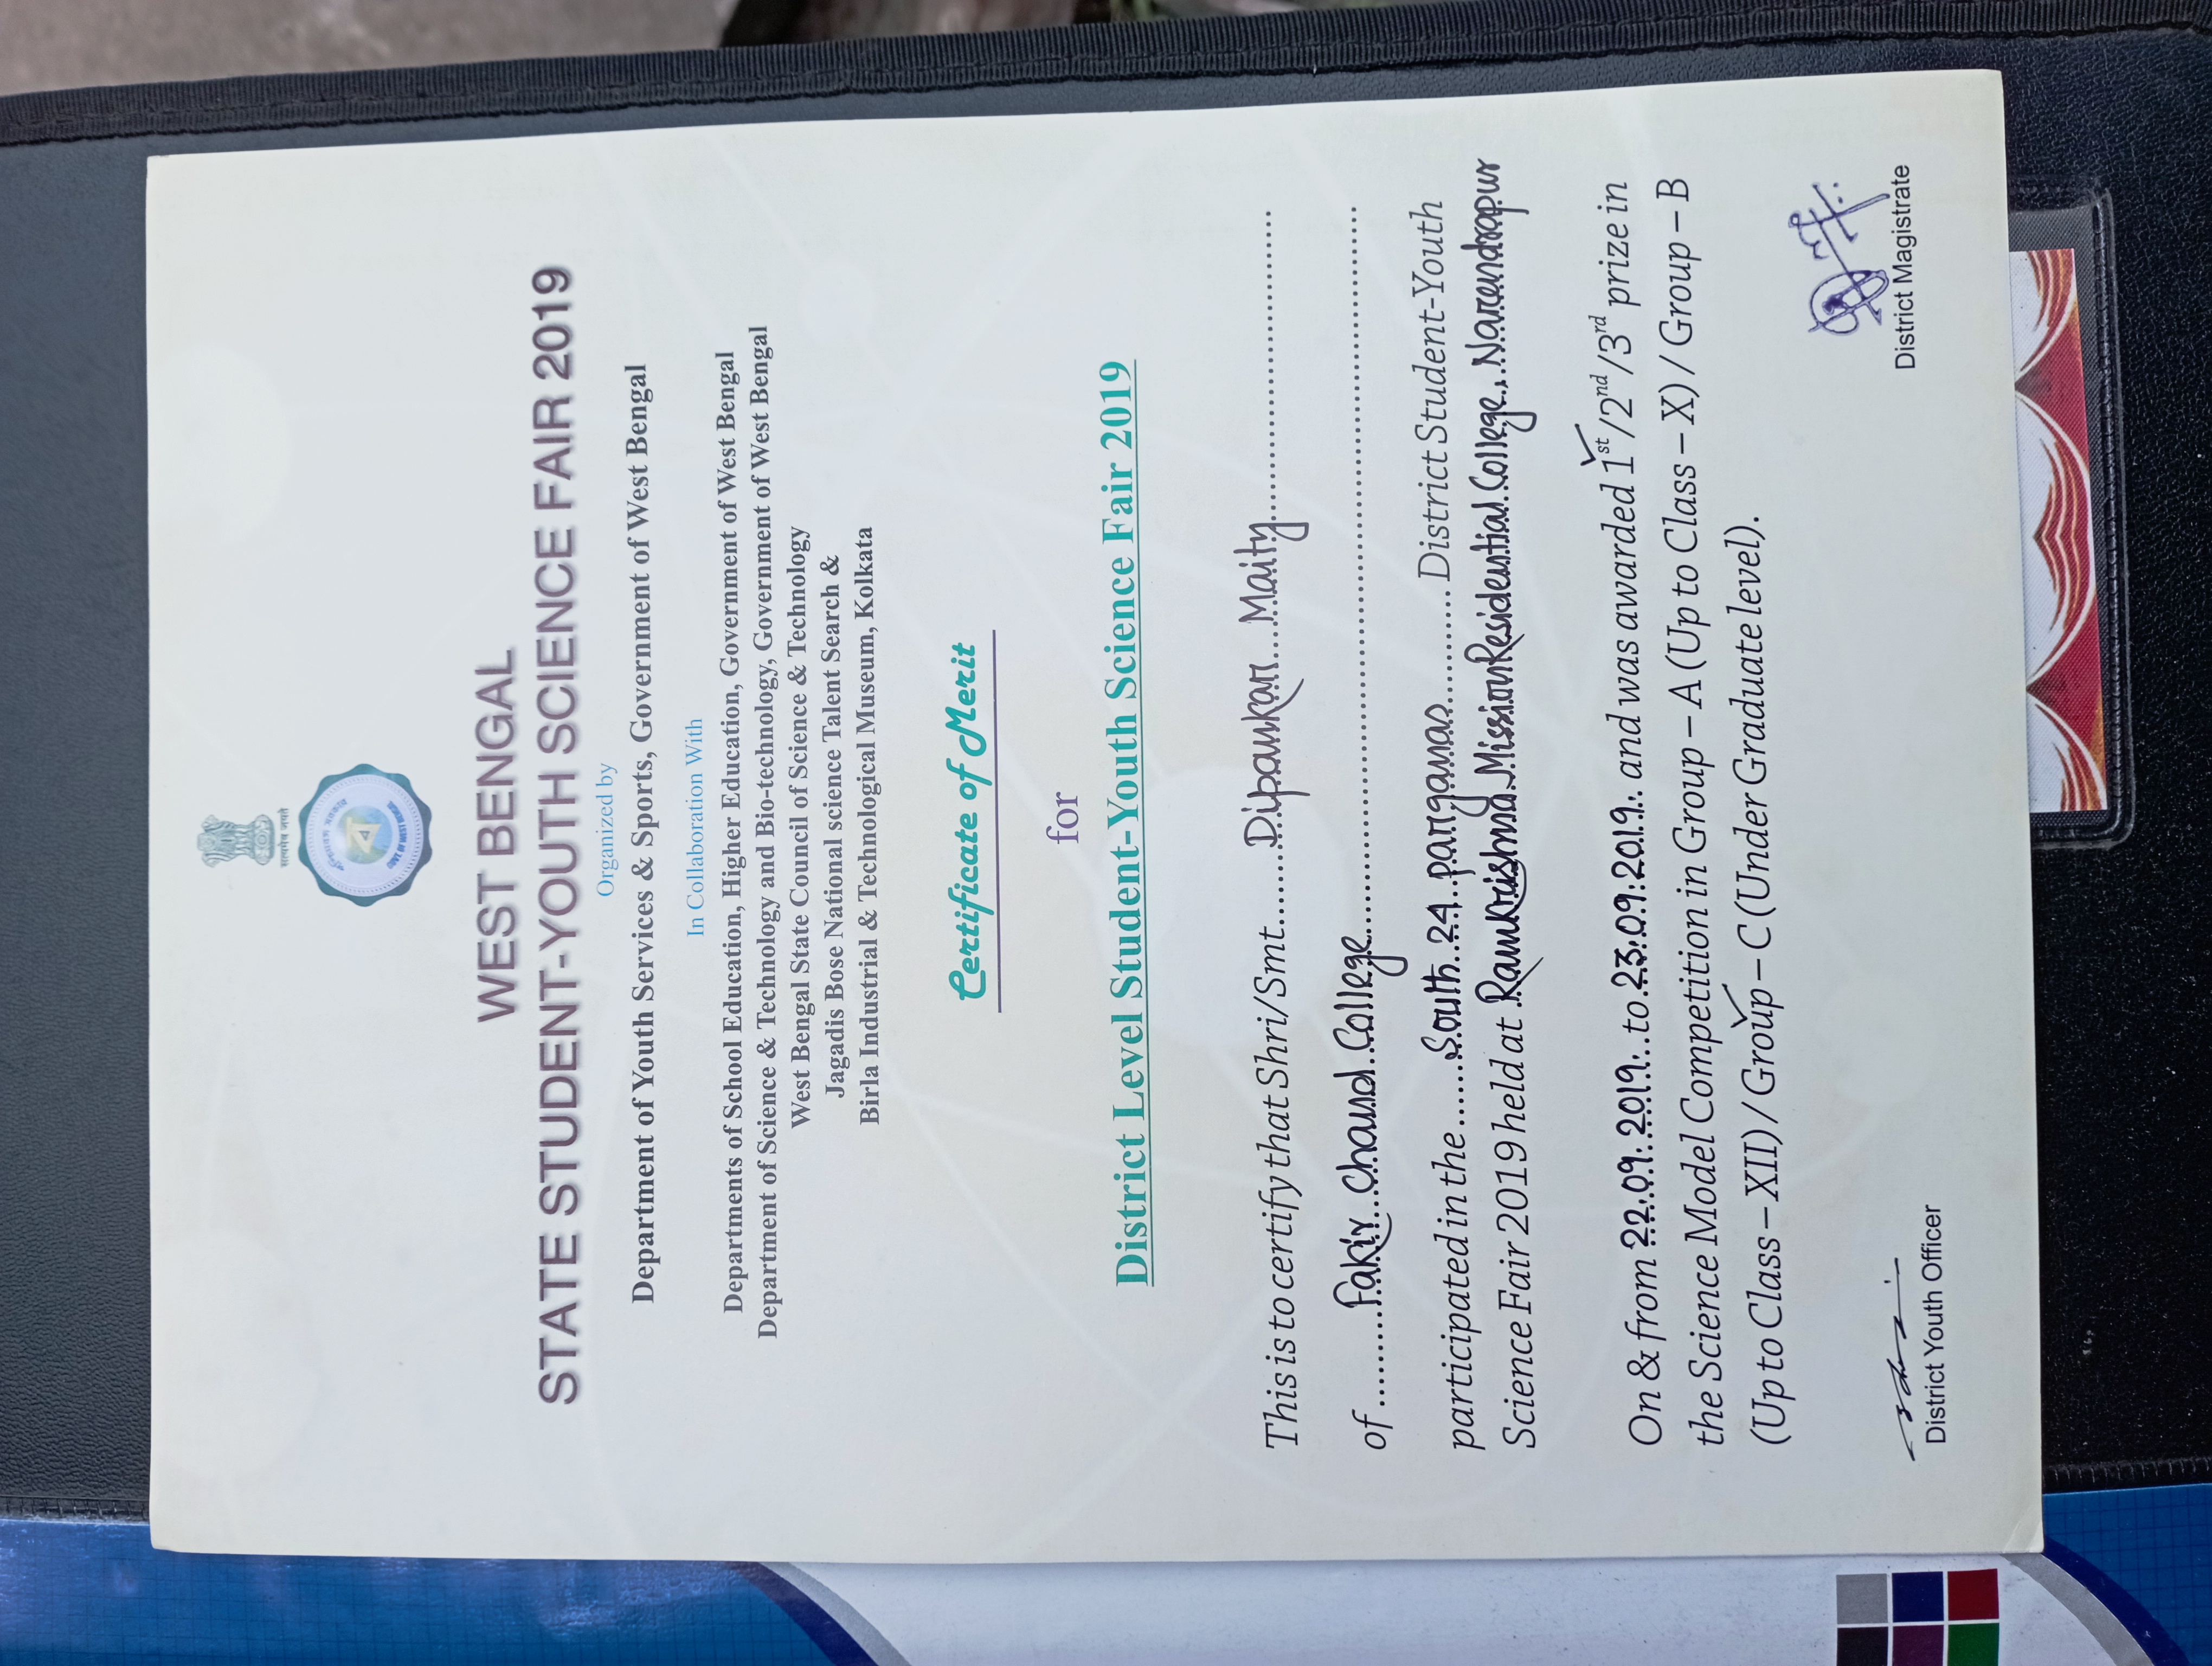 सत्यमेव जयते
পশ্চিমবঙ্গ সরকার
ব
GOVT. OF WEST BENGAL
WEST BENGAL
STATE STUDENT-YOUTH SCIENCE FAIR 2019
Organized by
Department of Youth Services & Sports, Government of West Bengal
In Collaboration With
Departments of School Education, Higher Education, Government of West Bengal
Department of Science & Technology and Bio-technology, Government of West Bengal
West Bengal State Council of Science & Technology
Jagadis Bose National science Talent Search &
Birla Industrial & Technological Museum, Kolkata
Certificate of Merit
for
District Level Student-Youth Science Fair 2019
This is to certify that Shri/Smt. Dipankar Maity
of Fakir Chand College
participated in the South 24 parganas District Student-Youth
Science Fair 2019 held at Ramkrishna Mission Residential College, Narendrapur
On & from 22.09.2019 to 23.09.2019 and was awarded 1st/2nd/3rd prize in
the Science Model Competition in Group – A (Up to Class – X) / Group – B
(Up to Class – XII) / Group – C (Under Graduate level).
District Youth Officer
District Magistrate